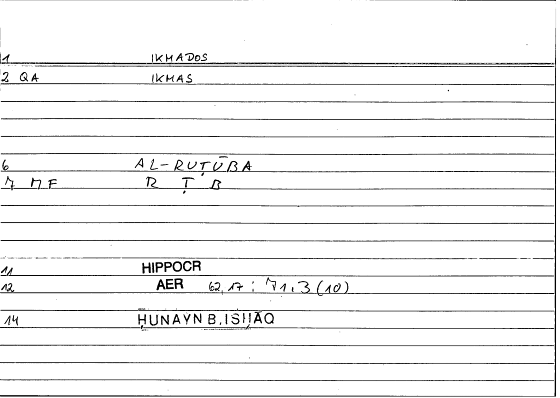 1 IKMADOS
2 QA IKMAS
6 AL-RUṬŪBA
7 MF R Ṭ B
11 HIPPOCR
12 AER 62,17 : 71.3 (10)
14 ḤUNAYN B. ISḤĀQ